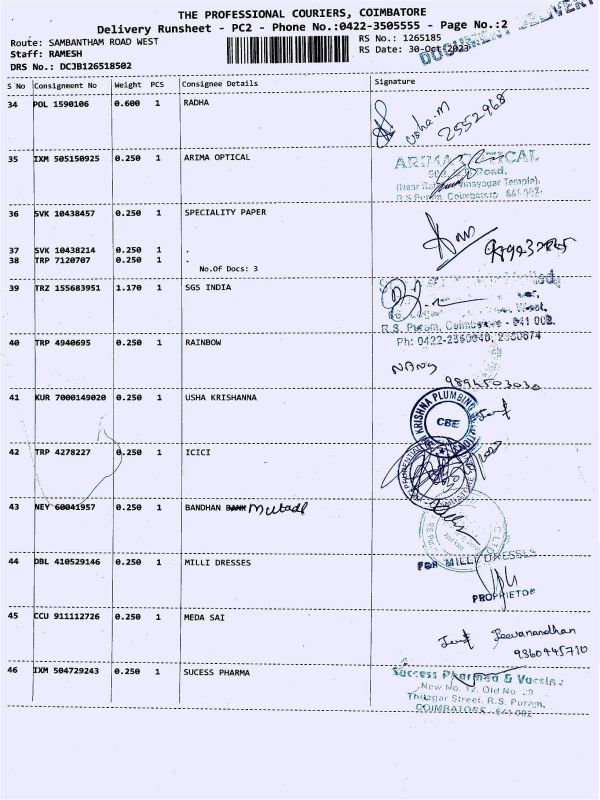 THE PROFESSIONAL COURIERS, COIMBATORE
Delivery Runsheet - PC2 - Phone No.:0422-3505555 - Page No.:2
DOCUMENT DELIVERY
Route: SAMBANTHAM ROAD WEST RS No.: 1265185
Staff: RAMESH RS Date: 30-Oct-2023
DRS No.: DCJB126518502
S No Consignment No Weight PCS Consignee Details Signature
34 POL 1590106 0.600 1 RADHA
usha.m
2552968
35 IXM 505150925 0.250 1 ARIMA OPTICAL
ARIMA OPTICAL
Road,
(Near Vinayagar Temple),
R.S Puram, Coimbatore 641 002.
36 SVK 10438457 0.250 1 SPECIALITY PAPER
37 SVK 10438214 0.250 1 .
38 TRP 7120707 0.250 1 .
No.Of Docs: 3
39 TRZ 155683951 1.170 1 SGS INDIA
West,
R.S. Puram, Coimbatore - 641 002.
Ph: 0422-2360040, 2350874
40 TRP 4940695 0.250 1 RAINBOW
9894503030
41 KUR 7000149020 0.250 1 USHA KRISHANNA
KRISHNA PLUMBING
CBE
42 TRP 4278227 0.250 1 ICICI
43 NEY 60041957 0.250 1 BANDHAN BANK Mutual
44 DBL 410529146 0.250 1 MILLI DRESSES
FOR MILLI DRESSES
PROPRIETOR
45 CCU 911112726 0.250 1 MEDA SAI
Jeevanandhan
9360445710
46 IXM 504729243 0.250 1 SUCESS PHARMA
Success Pharma & Vaccine
New No. 12, Old No. 29
Thilagar Street, R.S. Puram,
COIMBATORE - 641 002